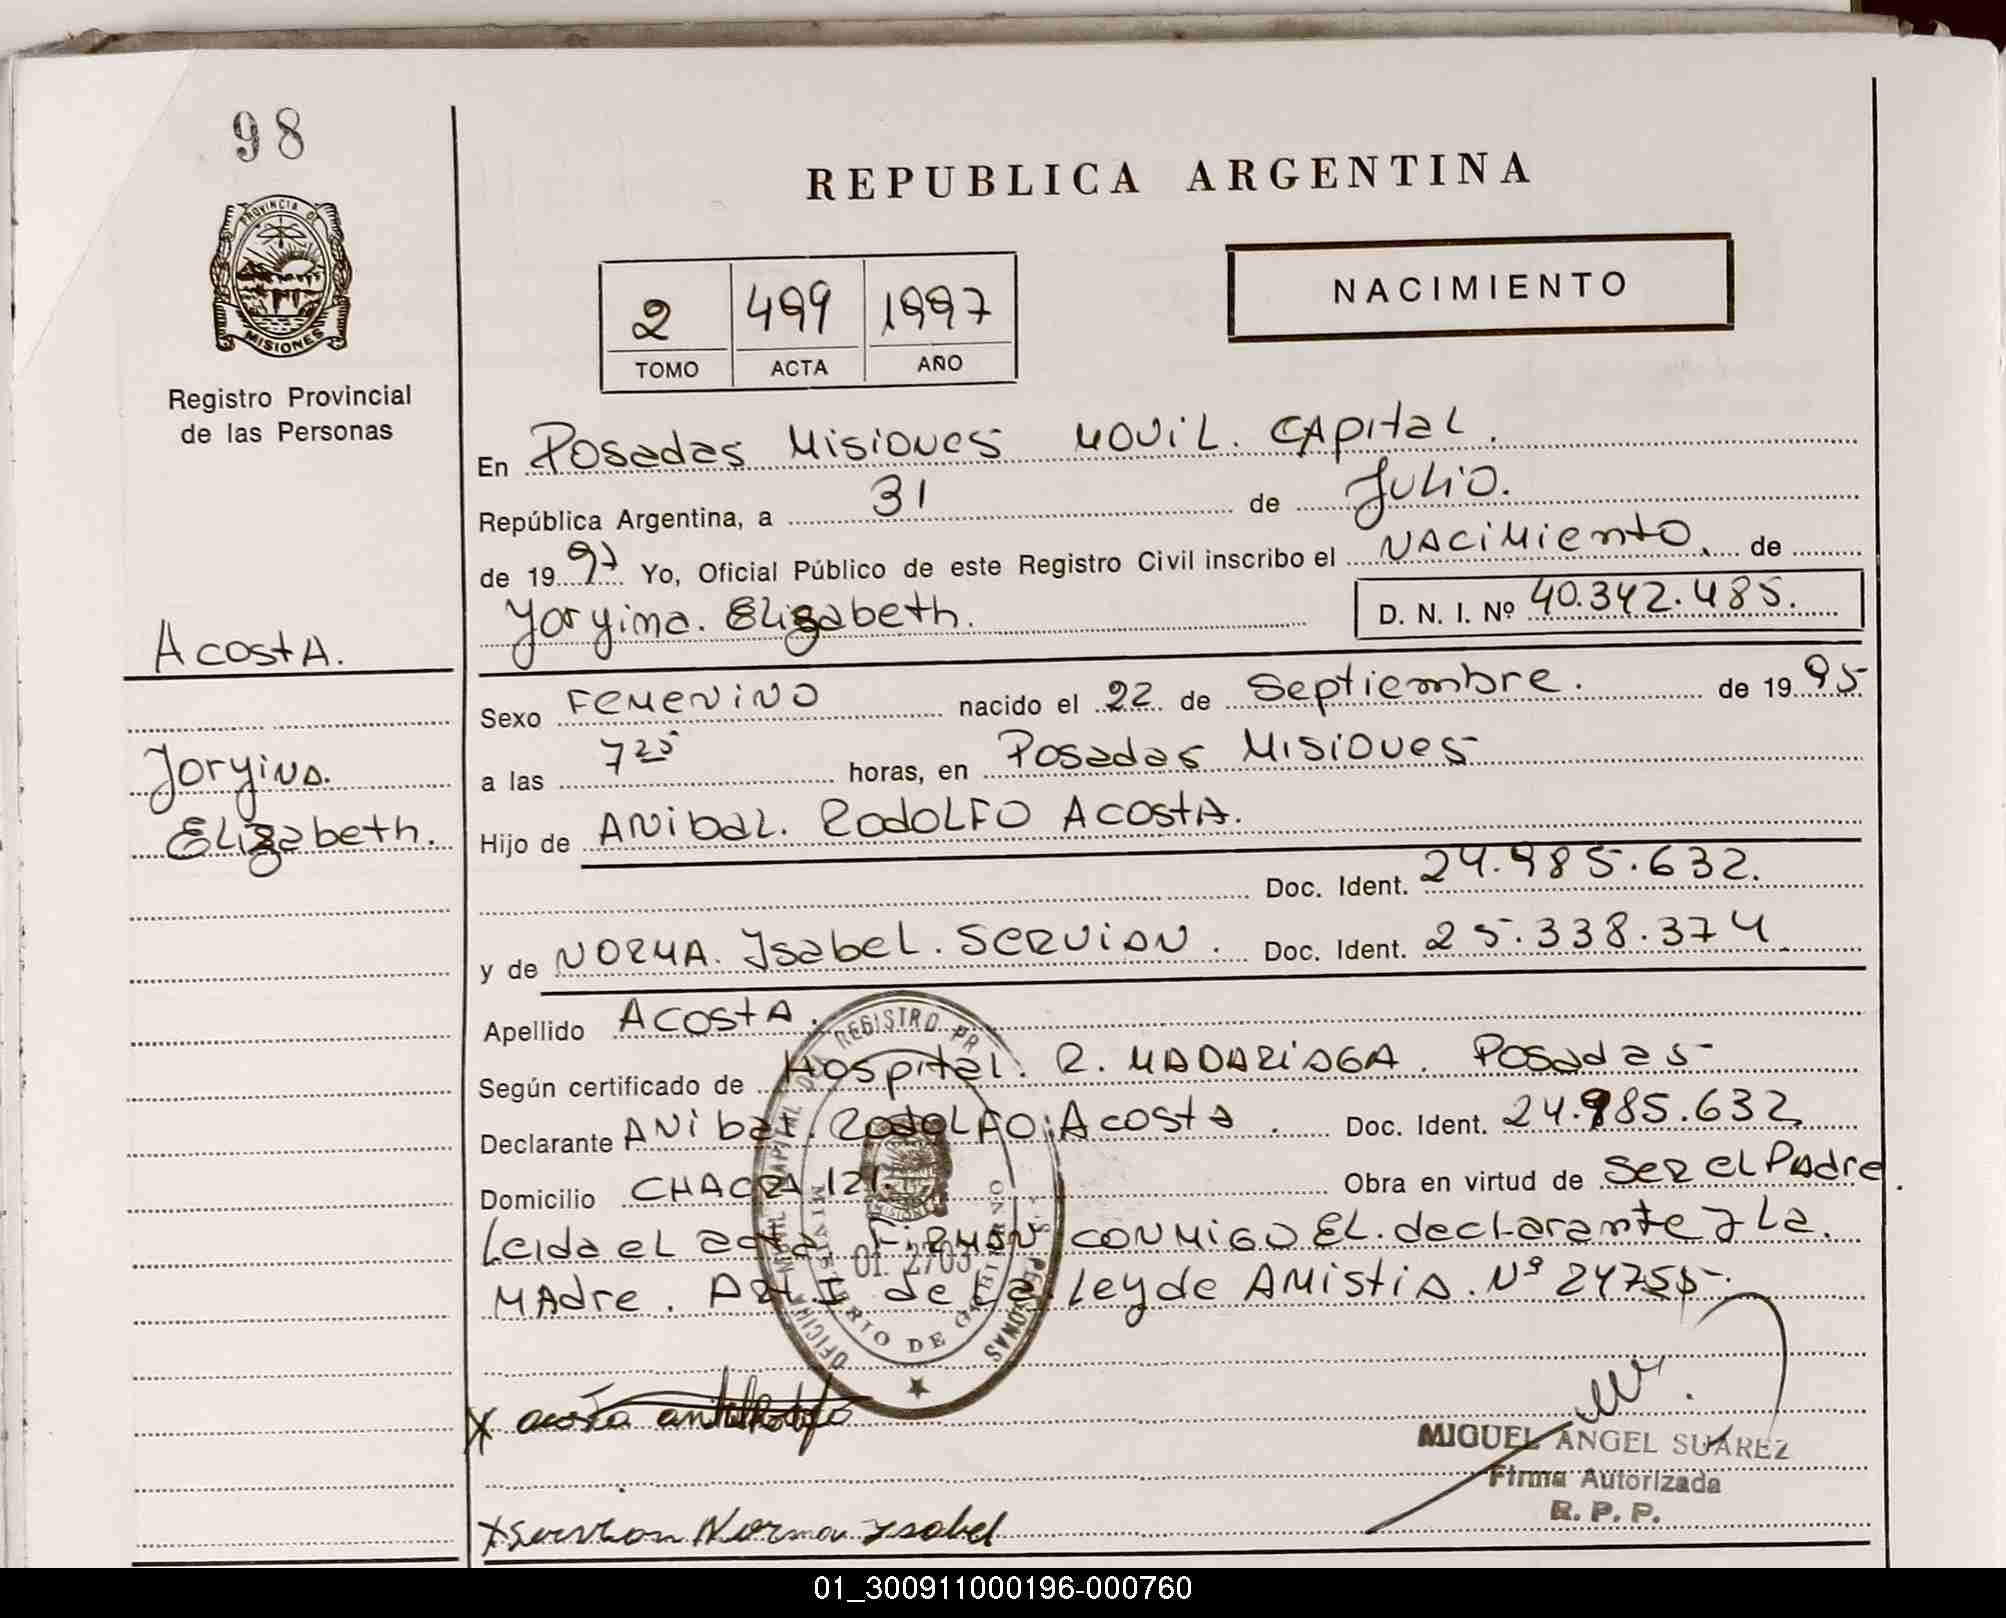 98
PROVINCIA DE
MISIONES
Registro Provincial
de las Personas
REPUBLICA ARGENTINA
2 499 1997
TOMO ACTA AÑO
NACIMIENTO
En Posadas Misiones Movil. Capital.
República Argentina, a 31 de Julio.
de 1997 Yo, Oficial Público de este Registro Civil inscribo el Nacimiento, de
Yoryina. Elizabeth. D. N. I. Nº 40.342.485.
Acosta.
Sexo Femenino nacido el 22 de Septiembre. de 1995
Yoryina.
a las 7 25 horas, en Posadas Misiones
Elizabeth.
Hijo de Anibal. Rodolfo Acosta.
Doc. Ident. 24.985.632.
y de Norma. Ysabel. Servian. Doc. Ident. 25.338.374
Apellido Acosta.
Según certificado de Hospital. R. Madariaga. Posadas
Declarante Anibal. Rodolfo Acosta. Doc. Ident. 24.985.632
Domicilio Chacra 121. Obra en virtud de Ser el Padre.
Leida el acta Firman conmigo el. declarante y La.
Madre. Art. I de La Ley de Amistia. Nº 24755.
OFICINA MOVIL CAPITAL DEL REGISTRO PR
S PERSONAS
MINISTERIO DE GOBIERNO
MISIONES
01. 2703
x acosta
x Servian Norma Ysabel
MIGUEL ANGEL SUAREZ
Firma Autorizada
R. P. P.
01_300911000196-000760